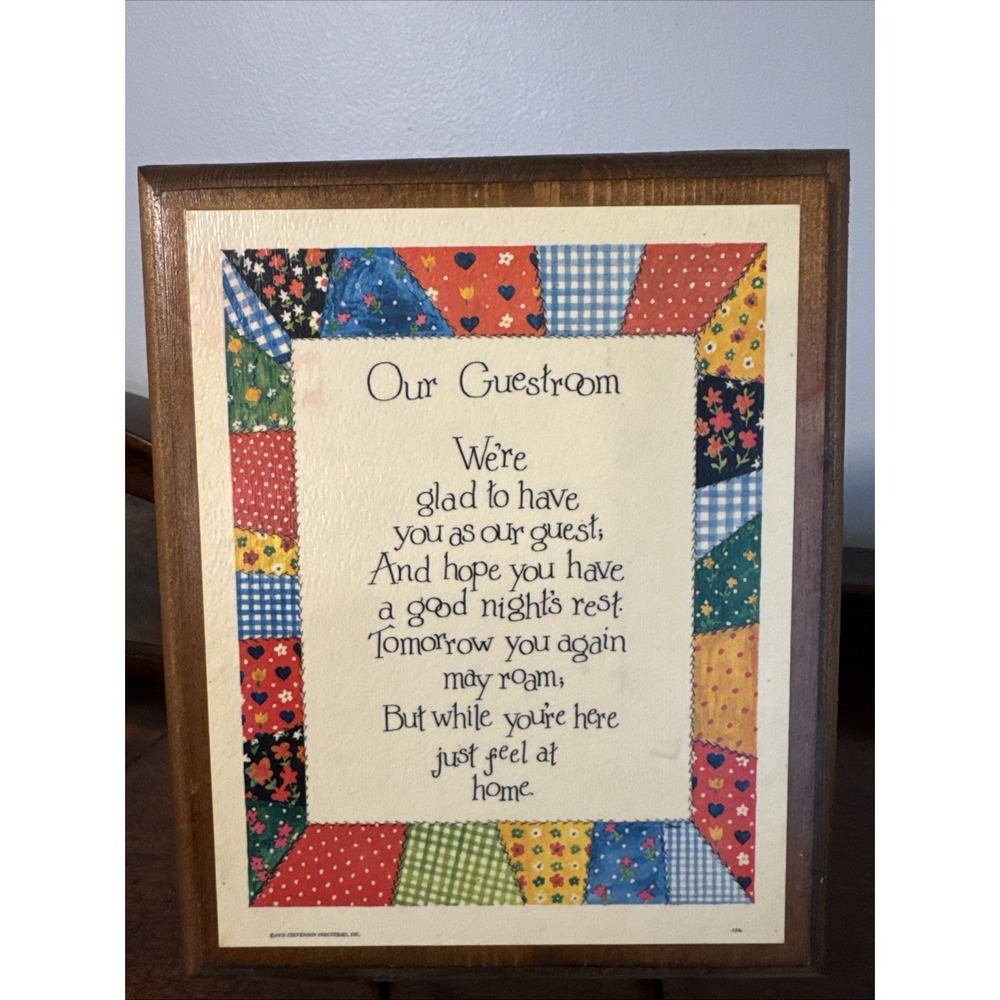 Our Guestroom
We're
glad to have
you as our guest;
And hope you have
a good night's rest.
Tomorrow you again
may roam;
But while you're here
just feel at
home.
STEVENSON INDUSTRIES, INC.